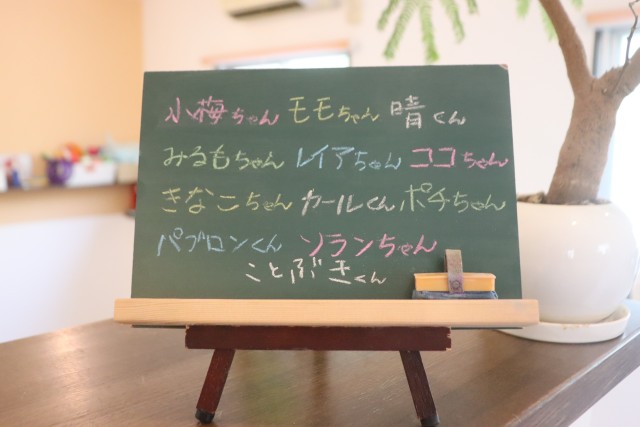 小梅ちゃん モモちゃん 晴くん
みるもちゃん レイアちゃん ココちゃん
きなこちゃん カールくん ポチちゃん
パブロンくん ソランちゃん
ことぶきくん